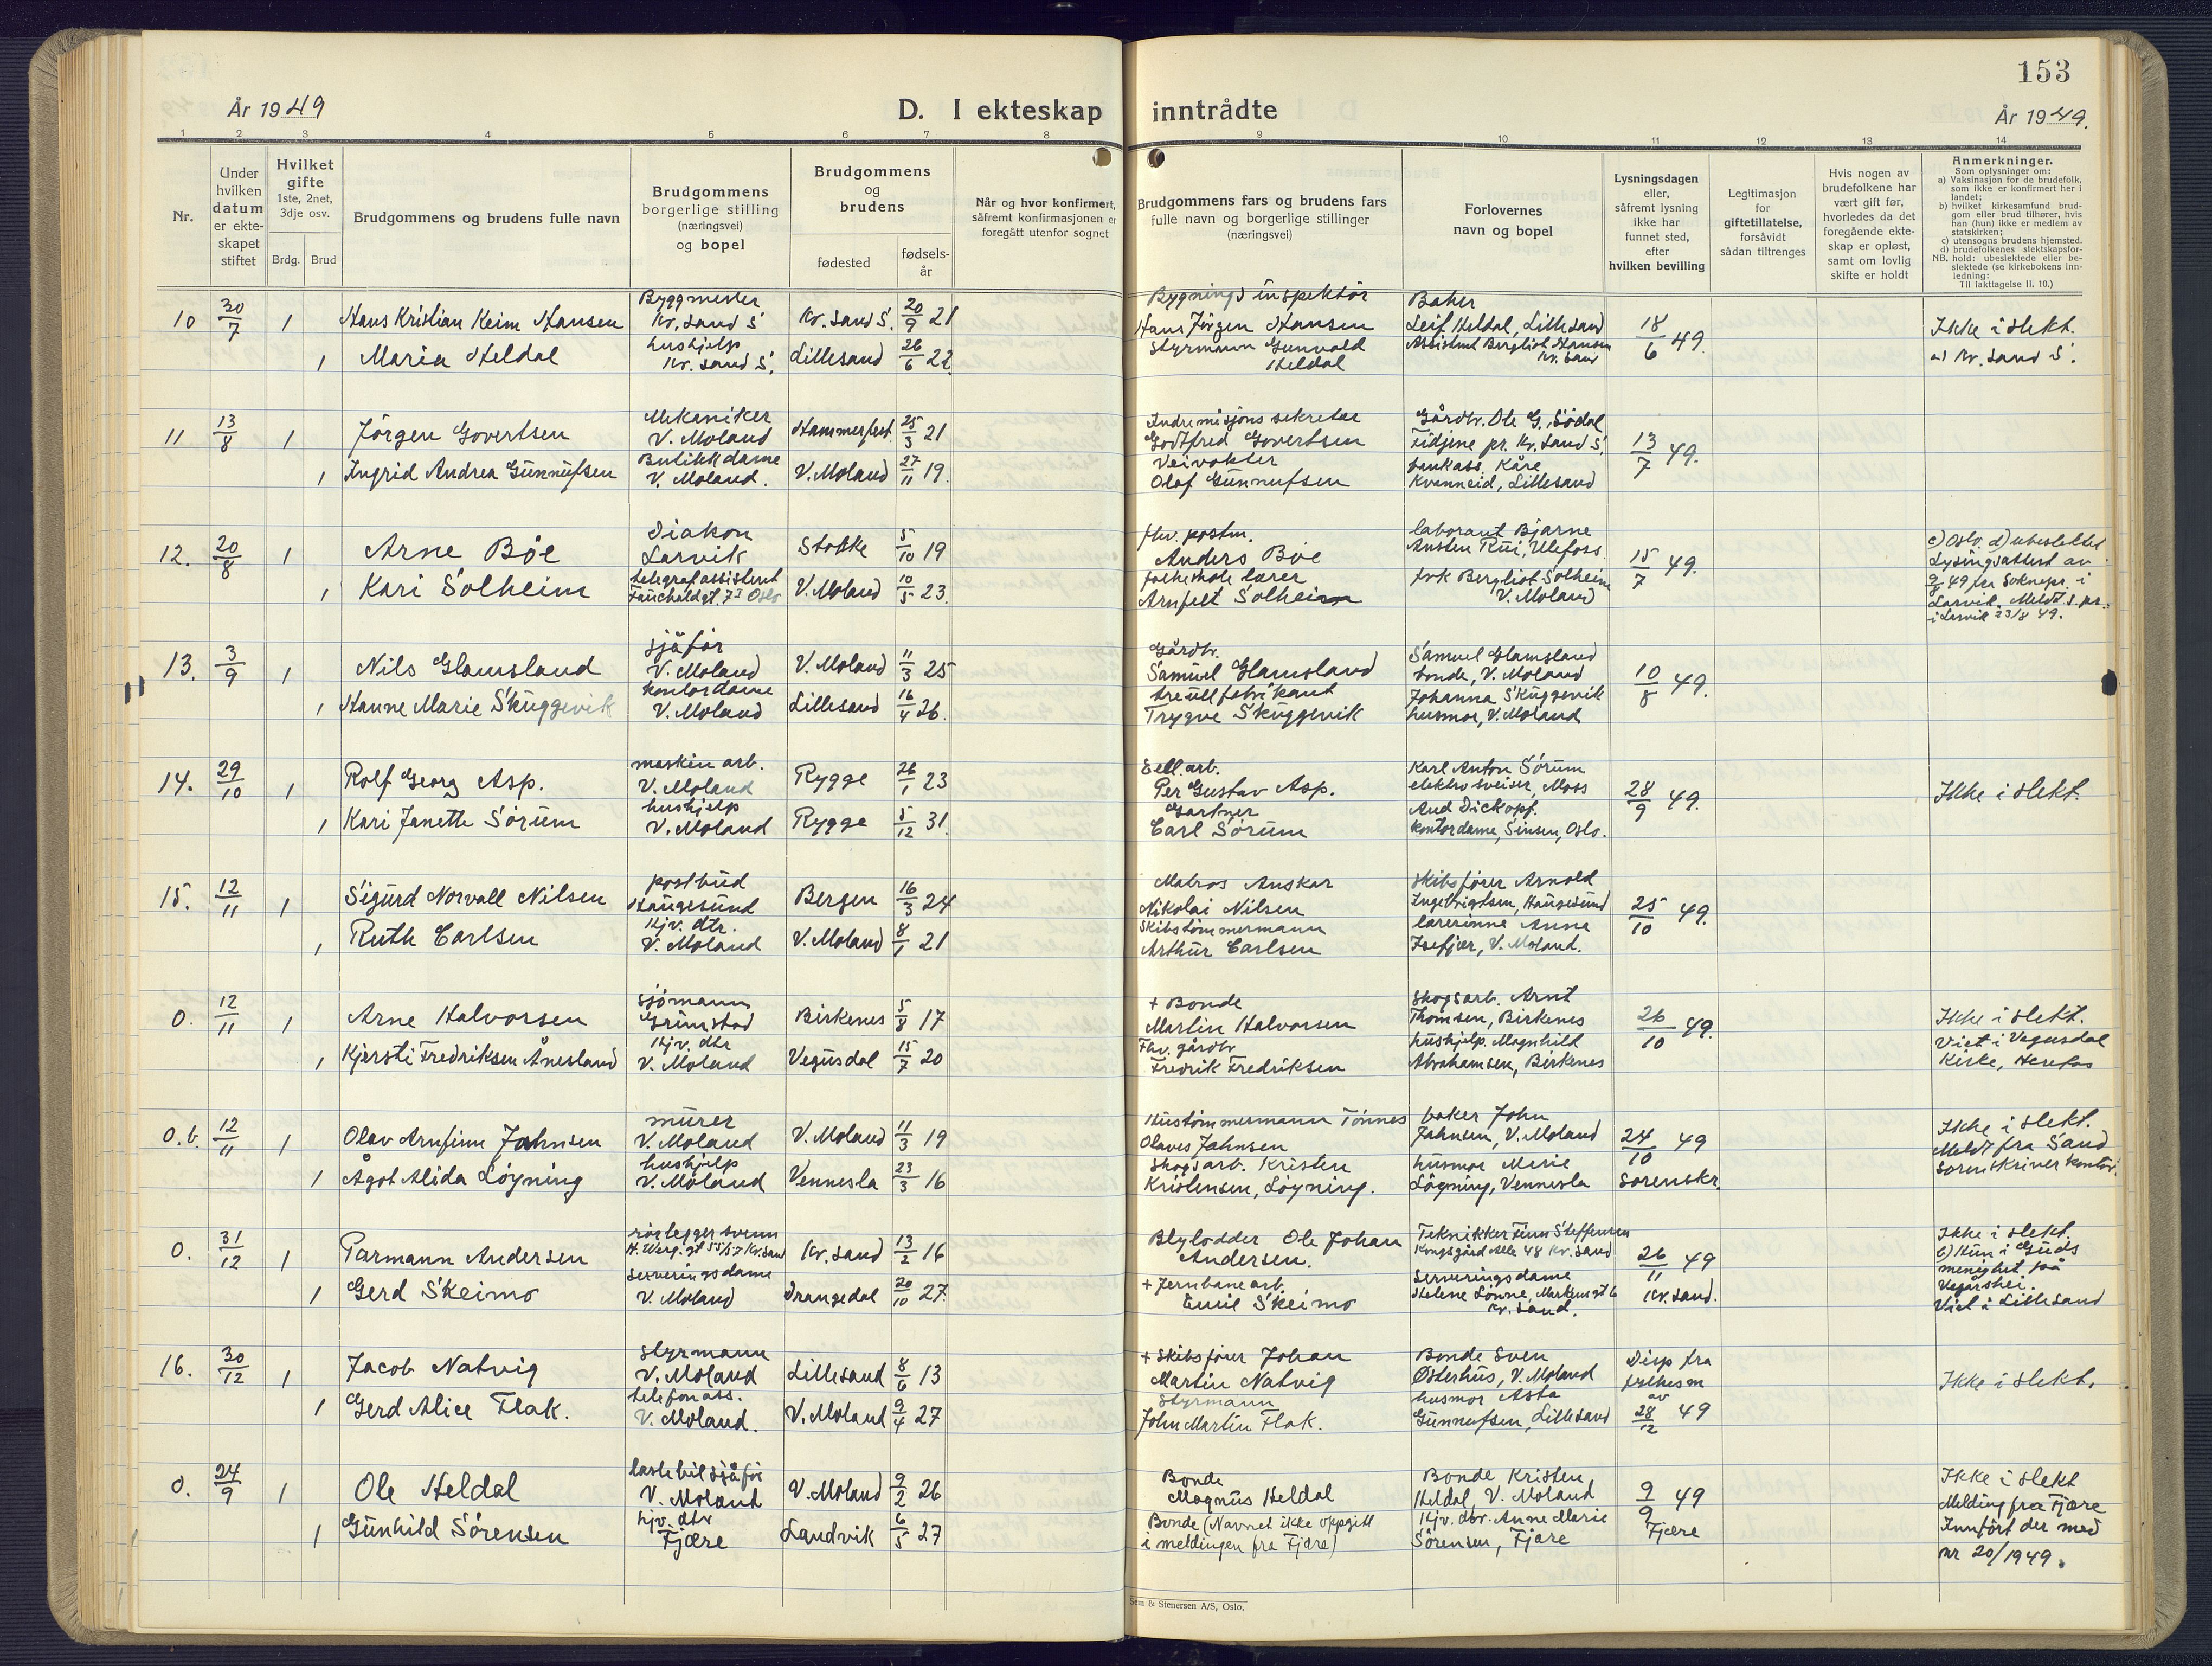 153
År 1949
D. I ekteskap inntrådte
År 1949.
1 2 3 4 5 6 7 8 9 10 11 12 13 14
Nr.
Under
hvilken
datum
er ekte-
skapet
stiftet
Hvilket
gifte
1ste, 2net,
3dje osv.
Brdg. Brud
Brudgommens og brudens fulle navn
Brudgommens
borgerlige stilling
(næringsvei)
og bopel
Brudgommens
og
brudens
fødested
fødsels-
år
Når og hvor konfirmert,
såfremt konfirmasjonen er
foregått utenfor sognet
Brudgommens fars og brudens fars
fulle navn og borgerlige stillinger
(næringsvei)
Forlovernes
navn og bopel
Lysningsdagen
eller,
såfremt lysning
ikke har
funnet sted,
efter
hvilken bevilling
Legitimasjon
for
giftetillatelse,
forsåvidt
sådan tiltrenges
Hvis nogen av
brudefolkene har
vært gift før,
hvorledes da det
foregående ekte-
skap er opløst,
samt om lovlig
skifte er holdt
Anmerkninger.
Som oplysninger om:
a) Vaksinasjon for de brudefolk,
som ikke er konfirmert her i
landet;
b) hvilket kirkesamfund brud-
gom eller brud tilhører, hvis
han (hun) ikke er medlem av
statskirken;
c) utensogns brudens hjemsted.
d) brudefolkenes slektskapsfor-
NB. hold: ubeslektede eller be-
slektede (se kirkebokens inn-
ledning:
Til iakttagelse II. 10.)
10 30/7 1 Hans Kristian Keim Hansen
Byggmester
Kr. sand S
Kr. sand S. 20/9 21
Bygnings inspektør
Hans Jørgen Hansen
Baker
Leif Heldal, Lillesand
18/6 49.
Ikke i slekt.
1 Maria Heldal
hushjelp
Kr. sand S.
Lillesand 26/6 22.
Styrmann Gunvald
Heldal
Assistent Bergliot Hansen
Kr. sand
Kr. sand S.
11 13/8 1 Jørgen Govertsen
Mekaniker
V. Moland
Hammerfest 25/3 21
Indremisjons sekretær
Godtfred Govertsen
Gårdbr. Ole G. Sødal
Fidjene pr. Kr. sand S.
13/7 49.
1 Ingrid Andrea Gunnufsen
Butikkdame
V. Moland.
V. Moland 27/11 19.
Veivokter
Olaf Gunnufsen
bankass. Kåre
Kvanneid, Lillesand
12. 20/8 1 Arne Bøe
Diakon
Larvik
Stokke 5/10 19
fhv. postm.
Anders Bøe
laborant Bjarne
Austen Rui, Ulefoss
15/7 49.
c) Oslo. d) ubeslektet
Lysingsattest av
9/8 49 fra Soknepr. i
Larvik. Meldt s. pr.
i Larvik 23/8 49.
1 Kari Solheim
telegrafassistent
Fauchaldgt. 7 I Oslo
V. Moland 10/5 23.
folkeskole lærer
Arnfelt Solheim
frk Bergliot Solheim
V. Moland
13. 3/9 1 Nils Glamsland
sjåfør
V. Moland
V. Moland 11/3 25
Gårdbr.
Samuel Glamsland
Samuel Glamsland
bonde, V. Moland
10/8 49.
1 Hanne Marie Skuggevik
kontordame
V. Moland
Lillesand 16/4 26.
treullfabrikant
Trygve Skuggevik
Johanna Skuggevik
husmor, V. Moland
14. 29/10 1 Rolf Georg Asp.
maskin arb.
V. Moland
Rygge 26/1 23
Cell. arb.
Per Gustav Asp.
Karl Anton Sørum
elektrosveiser, Moss
28/9 49.
Ikke i slekt.
1 Kari Janette Sørum
hushjelp
V. Moland
Rygge 5/12 31.
Gartner
Carl Sørum
Aud Dickopf.
kontordame, Sinsen, Oslo.
15. 12/11 1 Sigurd Norvall Nilsen
postbud
Haugesund
Bergen 16/3 24
Matros Anskar
Nikolai Nilsen
Skibsfører Arnold
Ingebrigtsen, Haugesund
25/10 49.
1 Ruth Carlsen
Hjv. dtr.
V. Moland
V. Moland 8/1 21
Skibstømmermann
Arthur Carlsen
lærerinne Anna
Isefjær, V. Moland.
0. 12/11 1 Arne Halvorsen
sjømann
Grimstad
Birkenes 5/8 17
+ Bonde
Martin Halvorsen
Skogsarb. Arnt
Thomsen, Birkenes
26/10 49.
Ikke i slekt.
Viet i Vegusdal
Kirke, Herefoss
1 Kjersti Fredriksen Ånesland
Hjv. dtr
V. Moland
Vegusdal 15/7 20
Fhv. gårdbr
Fredrik Fredriksen
hushjelp. Magnhild
Abrahamsen, Birkenes
0.b. 12/11 1 Olav Arnfinn Jahnsen
murer
V. Moland
V. Moland 11/3 19
Hustømmermann Tønnes
Olaves Jahnsen
baker John
Jahnsen, V. Moland
24/10 49
Sorenskr.
Ikke i slekt.
Meldt fra Sand
sorenskriverkontor.
1 Ågot Alida Løyning
hushjelp
V. Moland
Vennesla 23/3 16
Skogsarb. Kristen
Kristensen, Løyning.
husmor Merie
Løyning, Vennesla
0. 31/12 1 Tarmann Andersen
rørleggersvenn
H. Werg. gt 55/57 Kr. sand
Kr. sand 13/2 16
Blylodder Ole Johan
Andersen.
Teknikker Finn Steffensen
Kongsgård alle 48 Kr. sand
26/11 49
Kr. sand.
Ikke i slekt.
b) Hun i Guds
menighet på
Vegårshei.
Viet i Lillesand
1 Gerd Skeimo
serveringsdame
V. Moland
Drangedal 20/10 27.
+ Jernbanearb.
Emil Skeimo
Serveringsdame
Helene Lønne, Markensgt 6
Kr. sand.
16. 30/12 1 Jacob Natvig
Styrmann
V. Moland
Lillesand 8/6 13
+ Skibsfører Johan
Martin Natvig
Bonde Sven
Østerhus, V. Moland
Disp fra
fylkesm
av
28/12 49
Ikke i slekt.
1 Gerd Alice Flak.
telefonass.
V. Moland.
V. Moland 9/4 27
Styrmann
John Martin Flak.
husmor Asta
Gunnufsen, Lillesand
0. 24/9 1 Ole Heldal
lastebilsjåfør
V. Moland
V. Moland 9/2 26
Bonde
Magnus Heldal
Bonde Kristen
Heldal, V. Moland
9/9 49
Fjære
Ikke i slekt
Melding fra Fjære
Innført der med
nr 20/1949.
1 Gunhild Sørensen
hjv. dtr
Fjære
Landvik 6/5 27
Bonde (Navnet ikke oppgitt
i meldingen fra Fjære)
Hjv. dtr. Anne Marie
Sørensen, Fjære
Sem & Stenersen A/S, Oslo.